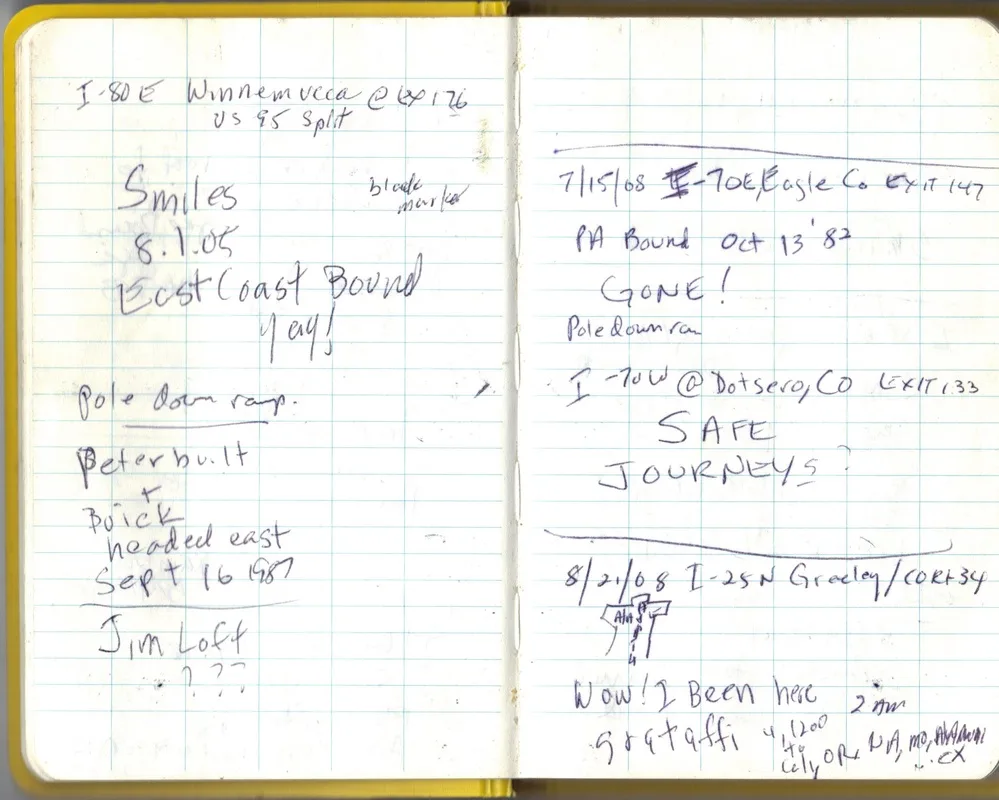 I-80 E Winnemucca @ EX 176
US 95 Split
Smiles
black
marker
8.1.05
East Coast Bound
Yay!
pole down ramp.
Peterbuilt
+
Buick
headed east
Sept 16 1987
Jim Loft
? ? ?
7/15/08 I-70E, Eagle Co EXIT 147
PA Bound Oct 13 '82
GONE!
Pole down ran
I-70W @ Dotsero, CO EXIT 133
SAFE
JOURNEYS
8/21/08 I-25N Greeley/CO Rt 34
Wow! I Been here
2 Am
grataffi
to